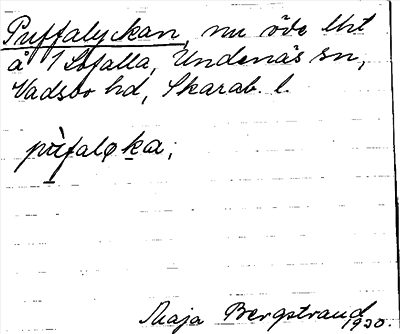 Puffalyckan, nu öde lht
å 1 Sofalla, Undenäs sn,
Vadsbo hd, Skarab. l.
pùfaløka;
Maja Bergstrand
1930.